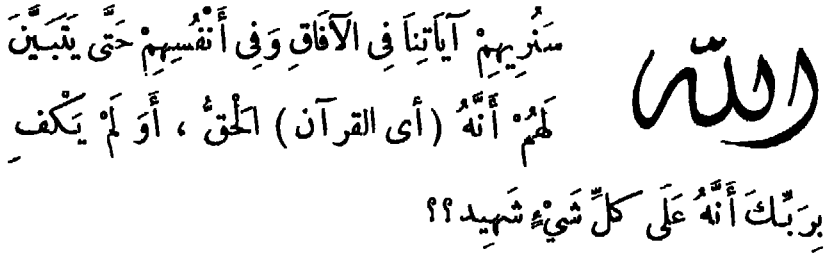 الله
سَنُرِيهِمْ آيَاتِنَا فِى الْآفَاقِ وَفِى أَنْفُسِهِمْ حَتَّى يَتَبَيَّنَ
لَهُمْ أَنَّهُ (أى القرآن) الْحَقُّ ، أَوَ لَمْ يَكْفِ
بِرَبِّكَ أَنَّهُ عَلَى كلِّ شَيْءٍ شَهِيد ؟؟